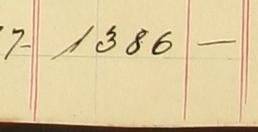 7- 1386 —